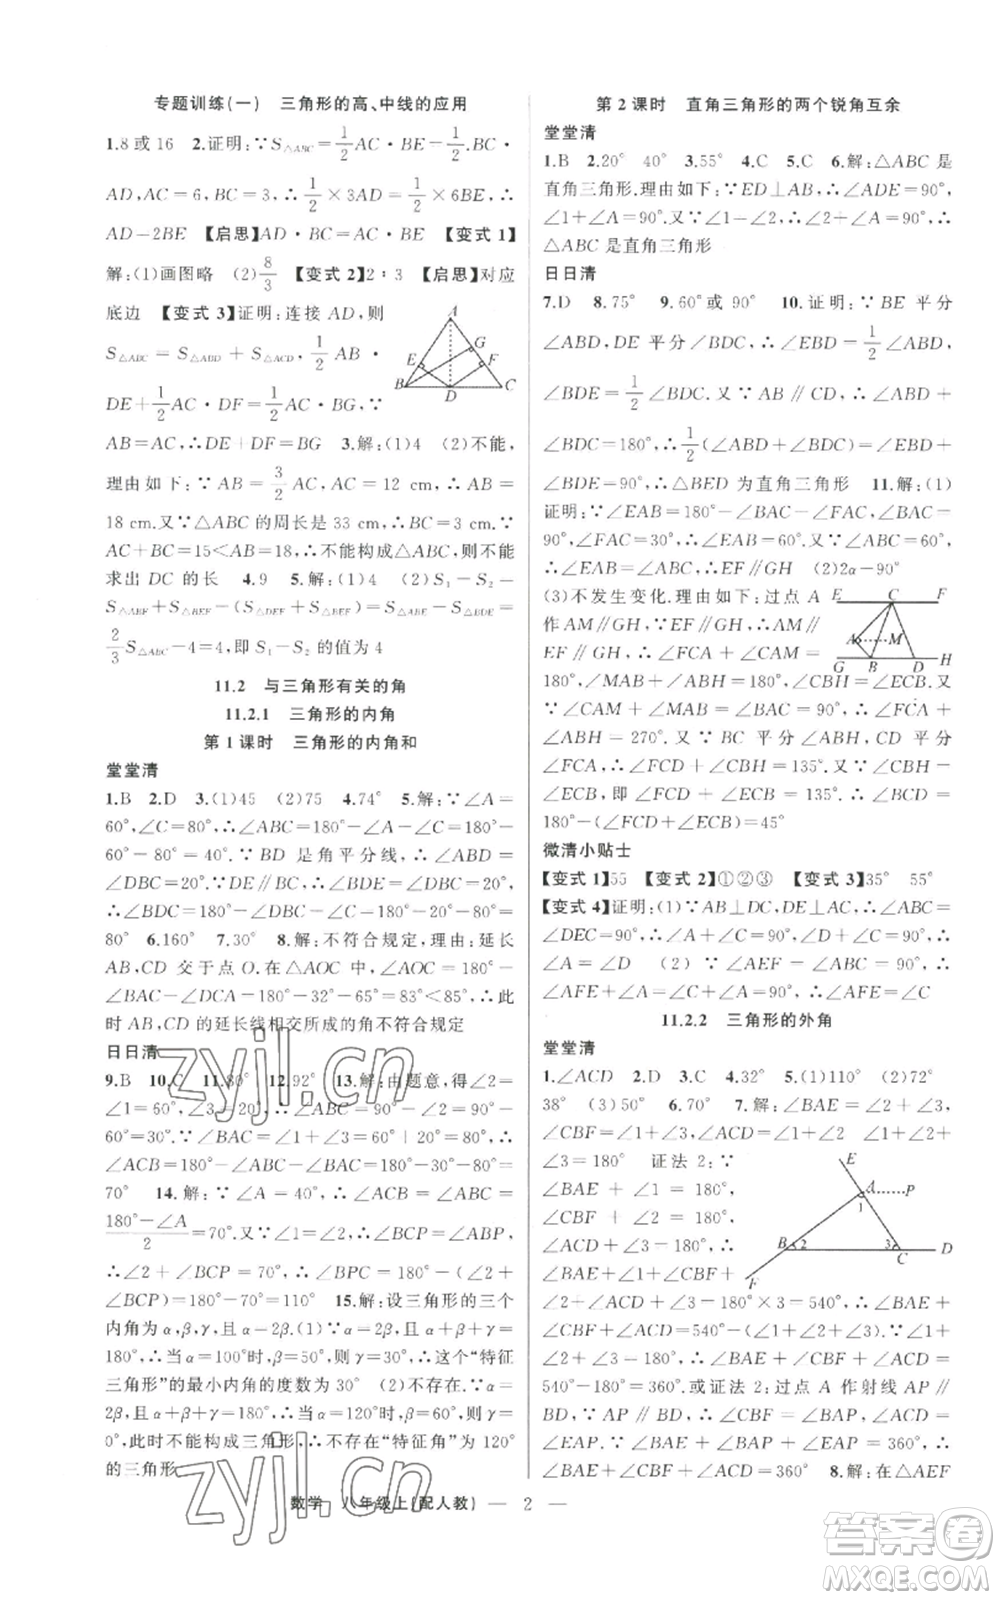 专题训练(一)　三角形的高、中线的应用
1.8 或 16　2.证明:∵S△ABC=1/2 AC·BE=1/2 BC·
AD,AC=6,BC=3,∴1/2×3AD=1/2×6BE,∴
AD=2BE　【启思】AD·BC=AC·BE　【变式 1】
解:(1)画图略　(2)8/3　【变式 2】2∶3　【启思】对应
底边　【变式 3】证明:连接 AD,则
S△ABC=S△ABD+S△ACD,1/2 AB·
DE+1/2 AC·DF=1/2 AC·BG,∵
AB=AC,∴DE+DF=BG　3.解:(1)4　(2)不能,
理由如下:∵AB=3/2 AC,AC=12 cm,∴AB=
18 cm.又∵△ABC 的周长是 33 cm,∴BC=3 cm.∵
AC+BC=15<AB=18,∴不能构成△ABC,则不能
求出 DC 的长　4.9　5.解:(1)4　(2)S₁-S₂=
S△AEF+S△BEF-(S△BDE+S△BEF)=S△ABF-S△BDE=
2/3 S△ABC-4=4,即 S₁-S₂ 的值为 4
11.2　与三角形有关的角
11.2.1　三角形的内角
第 1 课时　三角形的内角和
堂堂清
1.B　2.D　3.(1)45　(2)75　4.74°　5.解:∵∠A=
60°,∠C=80°,∴∠ABC=180°-∠A-∠C=180°-
60°-80°=40°.∵BD 是角平分线,∴∠ABD=
∠DBC=20°.∵DE∥BC,∴∠BDE=∠DBC=20°,
∠BDC=180°-∠DBC-∠C=180°-20°-80°=
80°　6.160°　7.30°　8.解:不符合规定,理由:延长
AB,CD 交于点 O.在△AOC 中,∠AOC=180°-
∠BAC-∠DCA=180°-32°-65°=83°<85°,∴此
时 AB,CD 的延长线相交所成的角不符合规定
日日清
9.B　10.C　11.80°　12.92°　13.解:由题意,得∠2=
∠1=60°,∠CBA=90°-∠2=90°-
60°=30°.∵∠BAC=∠1+∠3=80°,∴
∠ACB=180°-∠CBA-∠BAC=180°-30°-80°=
70°　14.解:∵∠A=40°,∴∠ACB=∠ABC=
(180°-∠A)/2=70°.又∵∠1=∠2,∴∠BCP=∠ABP,
∴∠2+∠BCP=70°,∴∠BPC=180°-(∠2+
∠BCP)=180°-70°=110°　15.解:设三角形的三个
内角为 α,β,γ,且 α=2β.(1)∵α=2β,且 α+β+γ=
180°,∴当 α=100°时,β=50°,则 γ=30°,∴这个“特征
三角形”的最小内角的度数为 30°　(2)不存在.∵α=
2β,且 α+β+γ=180°,∴当 α=120°时,β=60°,则 γ=
0°,此时不能构成三角形,∴不存在“特征角”为 120°
的三角形
第 2 课时　直角三角形的两个锐角互余
堂堂清
1.B　2.20°　40°　3.55°　4.C　5.C　6.解:△ABC 是
直角三角形.理由如下:∵ED⊥AB,∴∠ADE=90°,
∠1+∠A=90°.又∵∠1=∠2,∴∠2+∠A=90°,
∴△ABC 是直角三角形
日日清
7.D　8.75°　9.60°或 90°　10.证明:∵BE 平分
∠ABD,DE 平分∠BDC,∴∠EBD=1/2∠ABD,
∠BDE=1/2∠BDC.又∵AB∥CD,∴∠ABD+
∠BDC=180°,∴1/2(∠ABD+∠BDC)=∠EBD+
∠BDE=90°,∴△BED 为直角三角形　11.解:(1)
证明:∵∠EAB=180°-∠BAC-∠FAC,∠BAC=
90°,∠FAC=30°,∴∠EAB=60°.又∵∠ABC=60°,
∴∠EAB=∠ABC,∴EF∥GH　(2)2α-90°
(3)不发生变化.理由如下:过点 A
作 AM∥GH,∵EF∥GH,∴AM∥
EF∥GH,∴∠FCA+∠CAM=
180°,∠MAB+∠ABH=180°,∠CBH=∠ECB.又
∵∠CAM+∠MAB=∠BAC=90°,∴∠FCA+
∠ABH=270°.又∵BC 平分∠ABH,CD 平分
∠FCA,∴∠FCD+∠CBH=135°.又∵∠CBH=
∠ECB,即∠FCD+∠ECB=135°,∴∠BCD=
180°-(∠FCD+∠ECB)=45°
微清小贴士
【变式 1】55　【变式 2】①②③　【变式 3】35°　55°
【变式 4】证明:(1)∵AB⊥DC,DE⊥AC,∴∠ABC=
∠DEC=90°,∴∠A+∠C=90°,∠D+∠C=90°,
∴∠A=∠D　(2)∵∠AEF=∠ABC=90°,∴
∠AFE+∠A=∠C+∠A=90°,∴∠AFE=∠C
11.2.2　三角形的外角
堂堂清
1.∠ACD　2.D　3.C　4.32°　5.(1)110°　(2)72°
38°　(3)50°　6.70°　7.解:∠BAE=∠2+∠3,
∠CBF=∠1+∠3,∠ACD=∠1+∠2　∠1+∠2+
∠3=180°　证法 2:∵
∠BAE+∠1=180°,
∠CBF+∠2=180°,
∠ACD+∠3=180°,∴
∠BAE+∠1+∠CBF+
∠2+∠ACD+∠3=180°×3=540°,∴∠BAE+
∠CBF+∠ACD=540°-(∠1+∠2+∠3).∵∠1+
∠2+∠3=180°,∴∠BAE+∠CBF+∠ACD=
540°-180°=360°.或证法 2:过点 A 作射线 AP∥
BD,∵AP∥BD,∴∠CBF=∠BAP,∠ACD=
∠EAP.∵∠BAE+∠BAP+∠EAP=360°,∴
∠BAE+∠CBF+∠ACD=360°　8.解:在△AEF
数学　八年级上(配人教)　— 2 —
zyjl.cn
zyjl.cn
答案圈
MXQE.COM